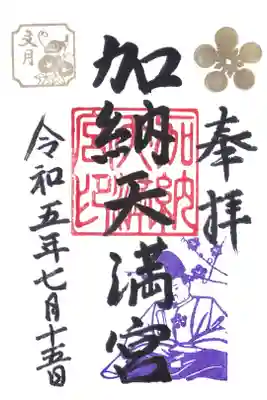 奉拝
加納天満宮
加納天満宮印
令和五年七月十五日
文月